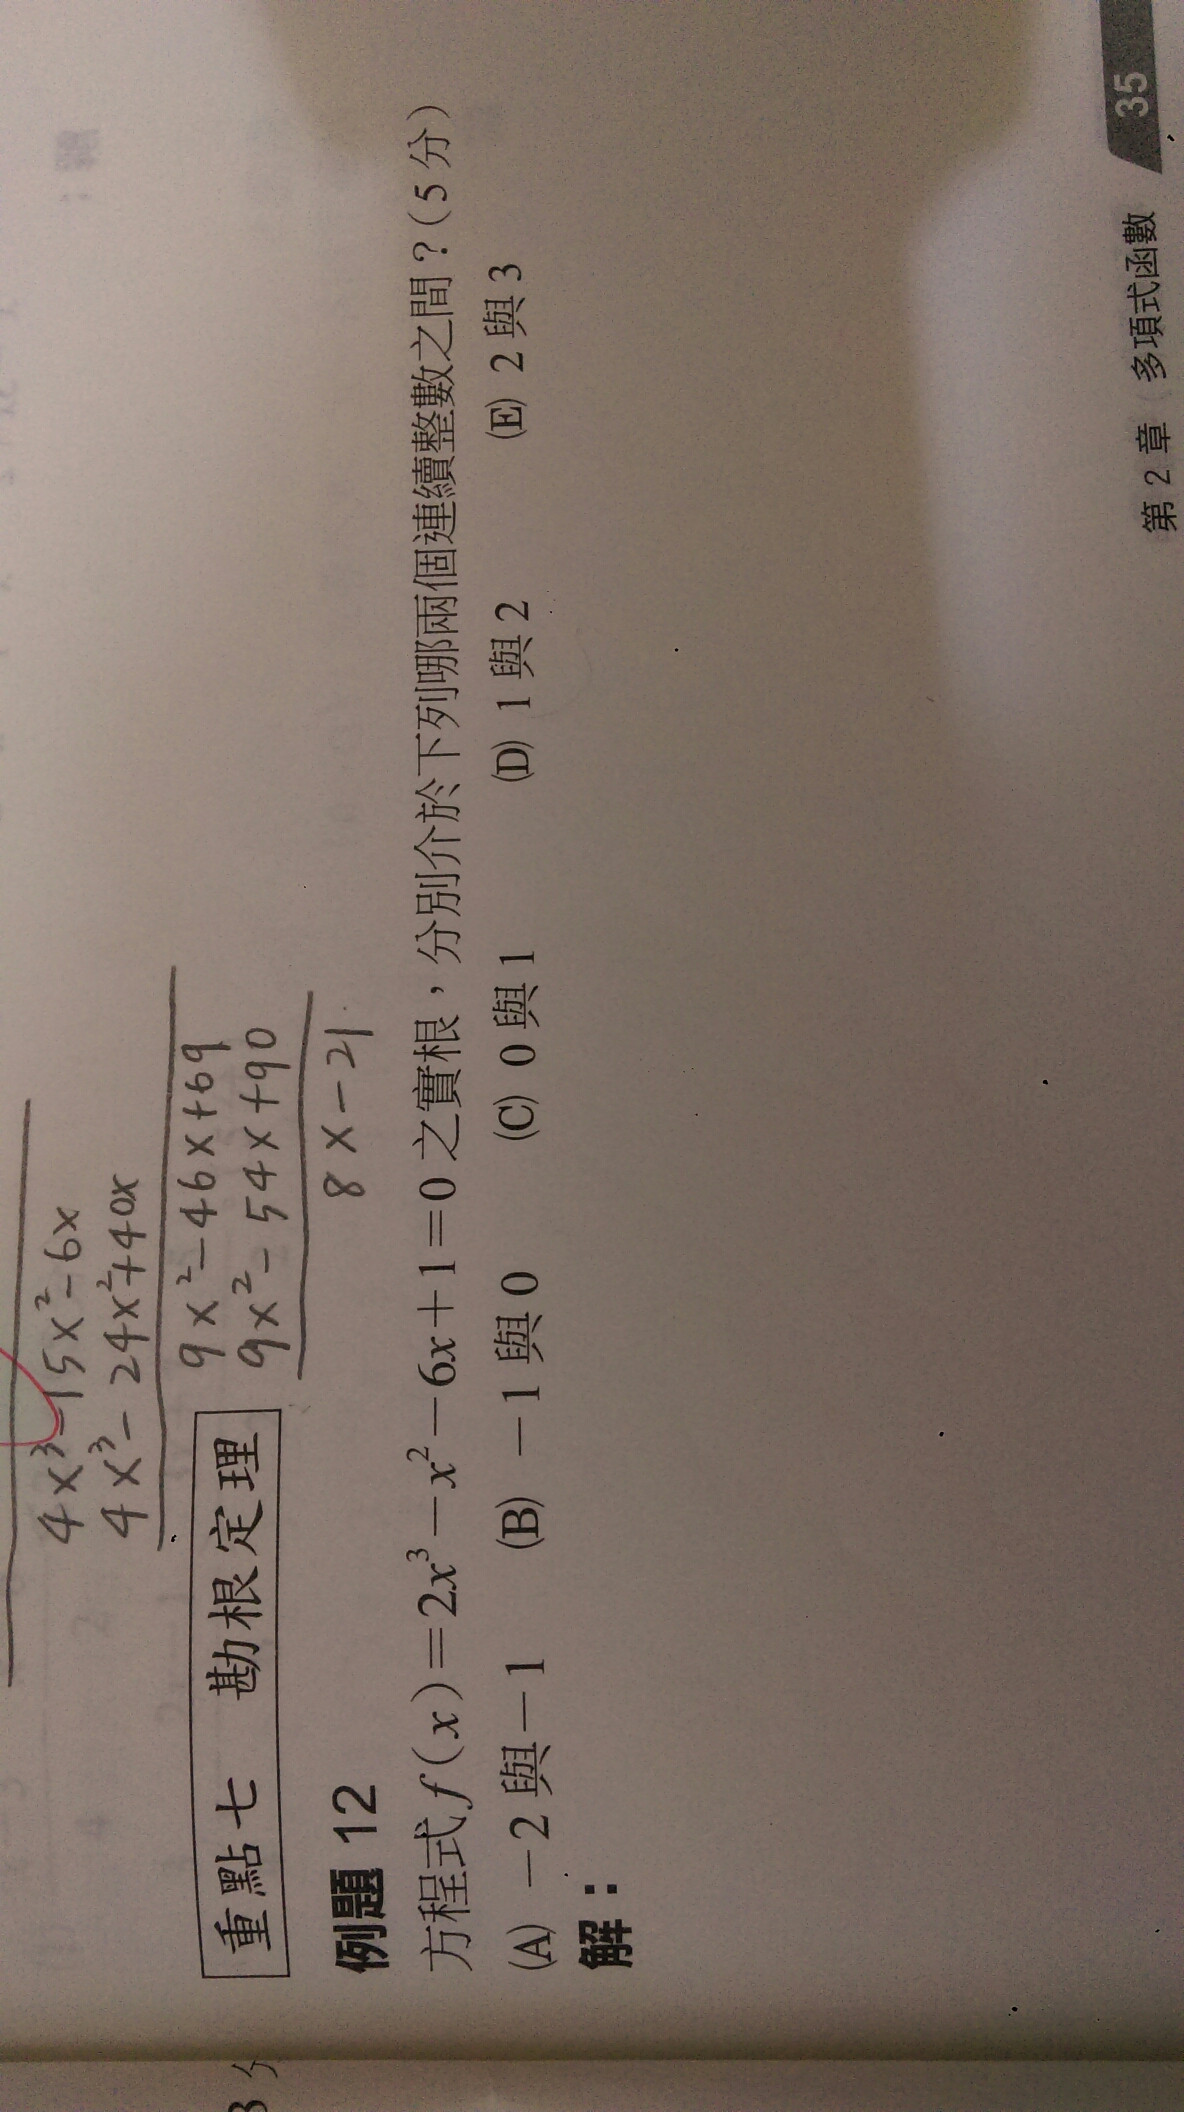 4x³-15x²-6x
4x³-24x²+40x
9x²-46x+69
9x²-54x+90
8x-21
重點七 勘根定理
例題 12
方程式 f(x)=2x³-x²-6x+1=0 之實根，分別介於下列哪兩個連續整數之間？（5 分）
(A) -2 與 -1 (B) -1 與 0 (C) 0 與 1 (D) 1 與 2 (E) 2 與 3
解：
第 2 章 多項式函數 35